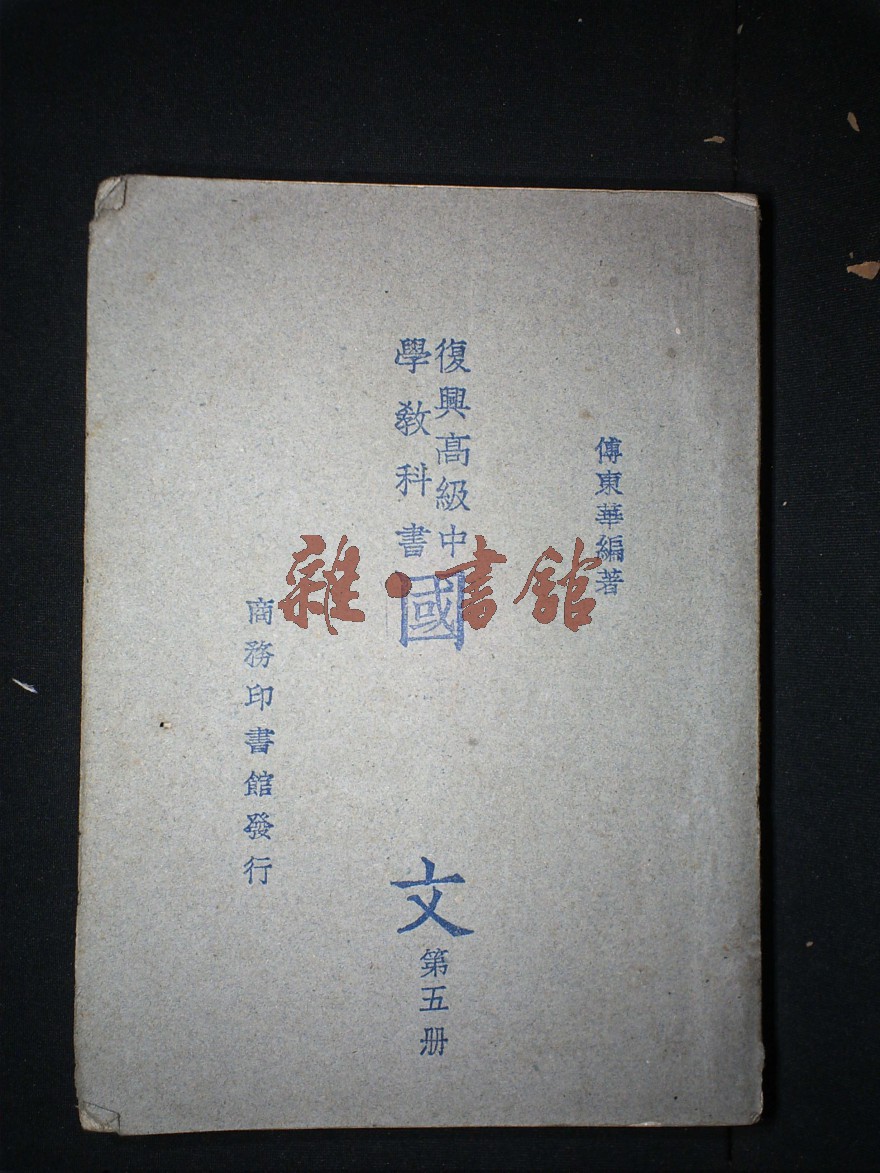 傅東華編著
復興高級中
學教科書
國文
第五册
商務印書館發行
雜·書館